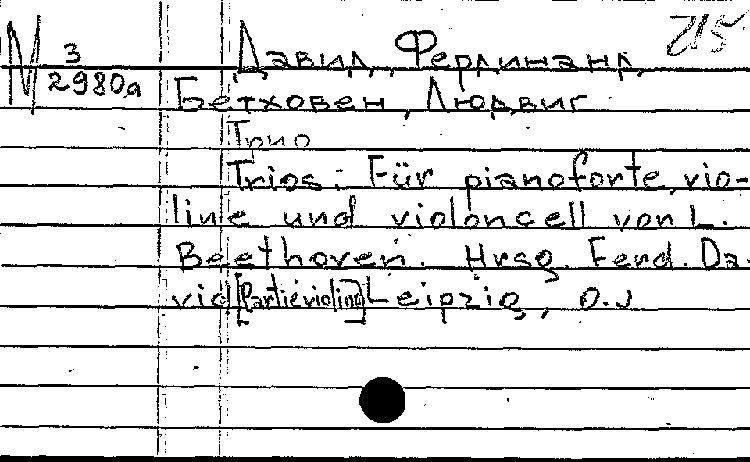 215
М 3/2980а
Давид, Фердинанд
Бетховен, Людвиг
Трио
Trios: Für pianoforte, vio-
line und violoncell von L.
Beethoven. Hrsg. Ferd. Da-
vid [Partie violino] Leipzig, o.J